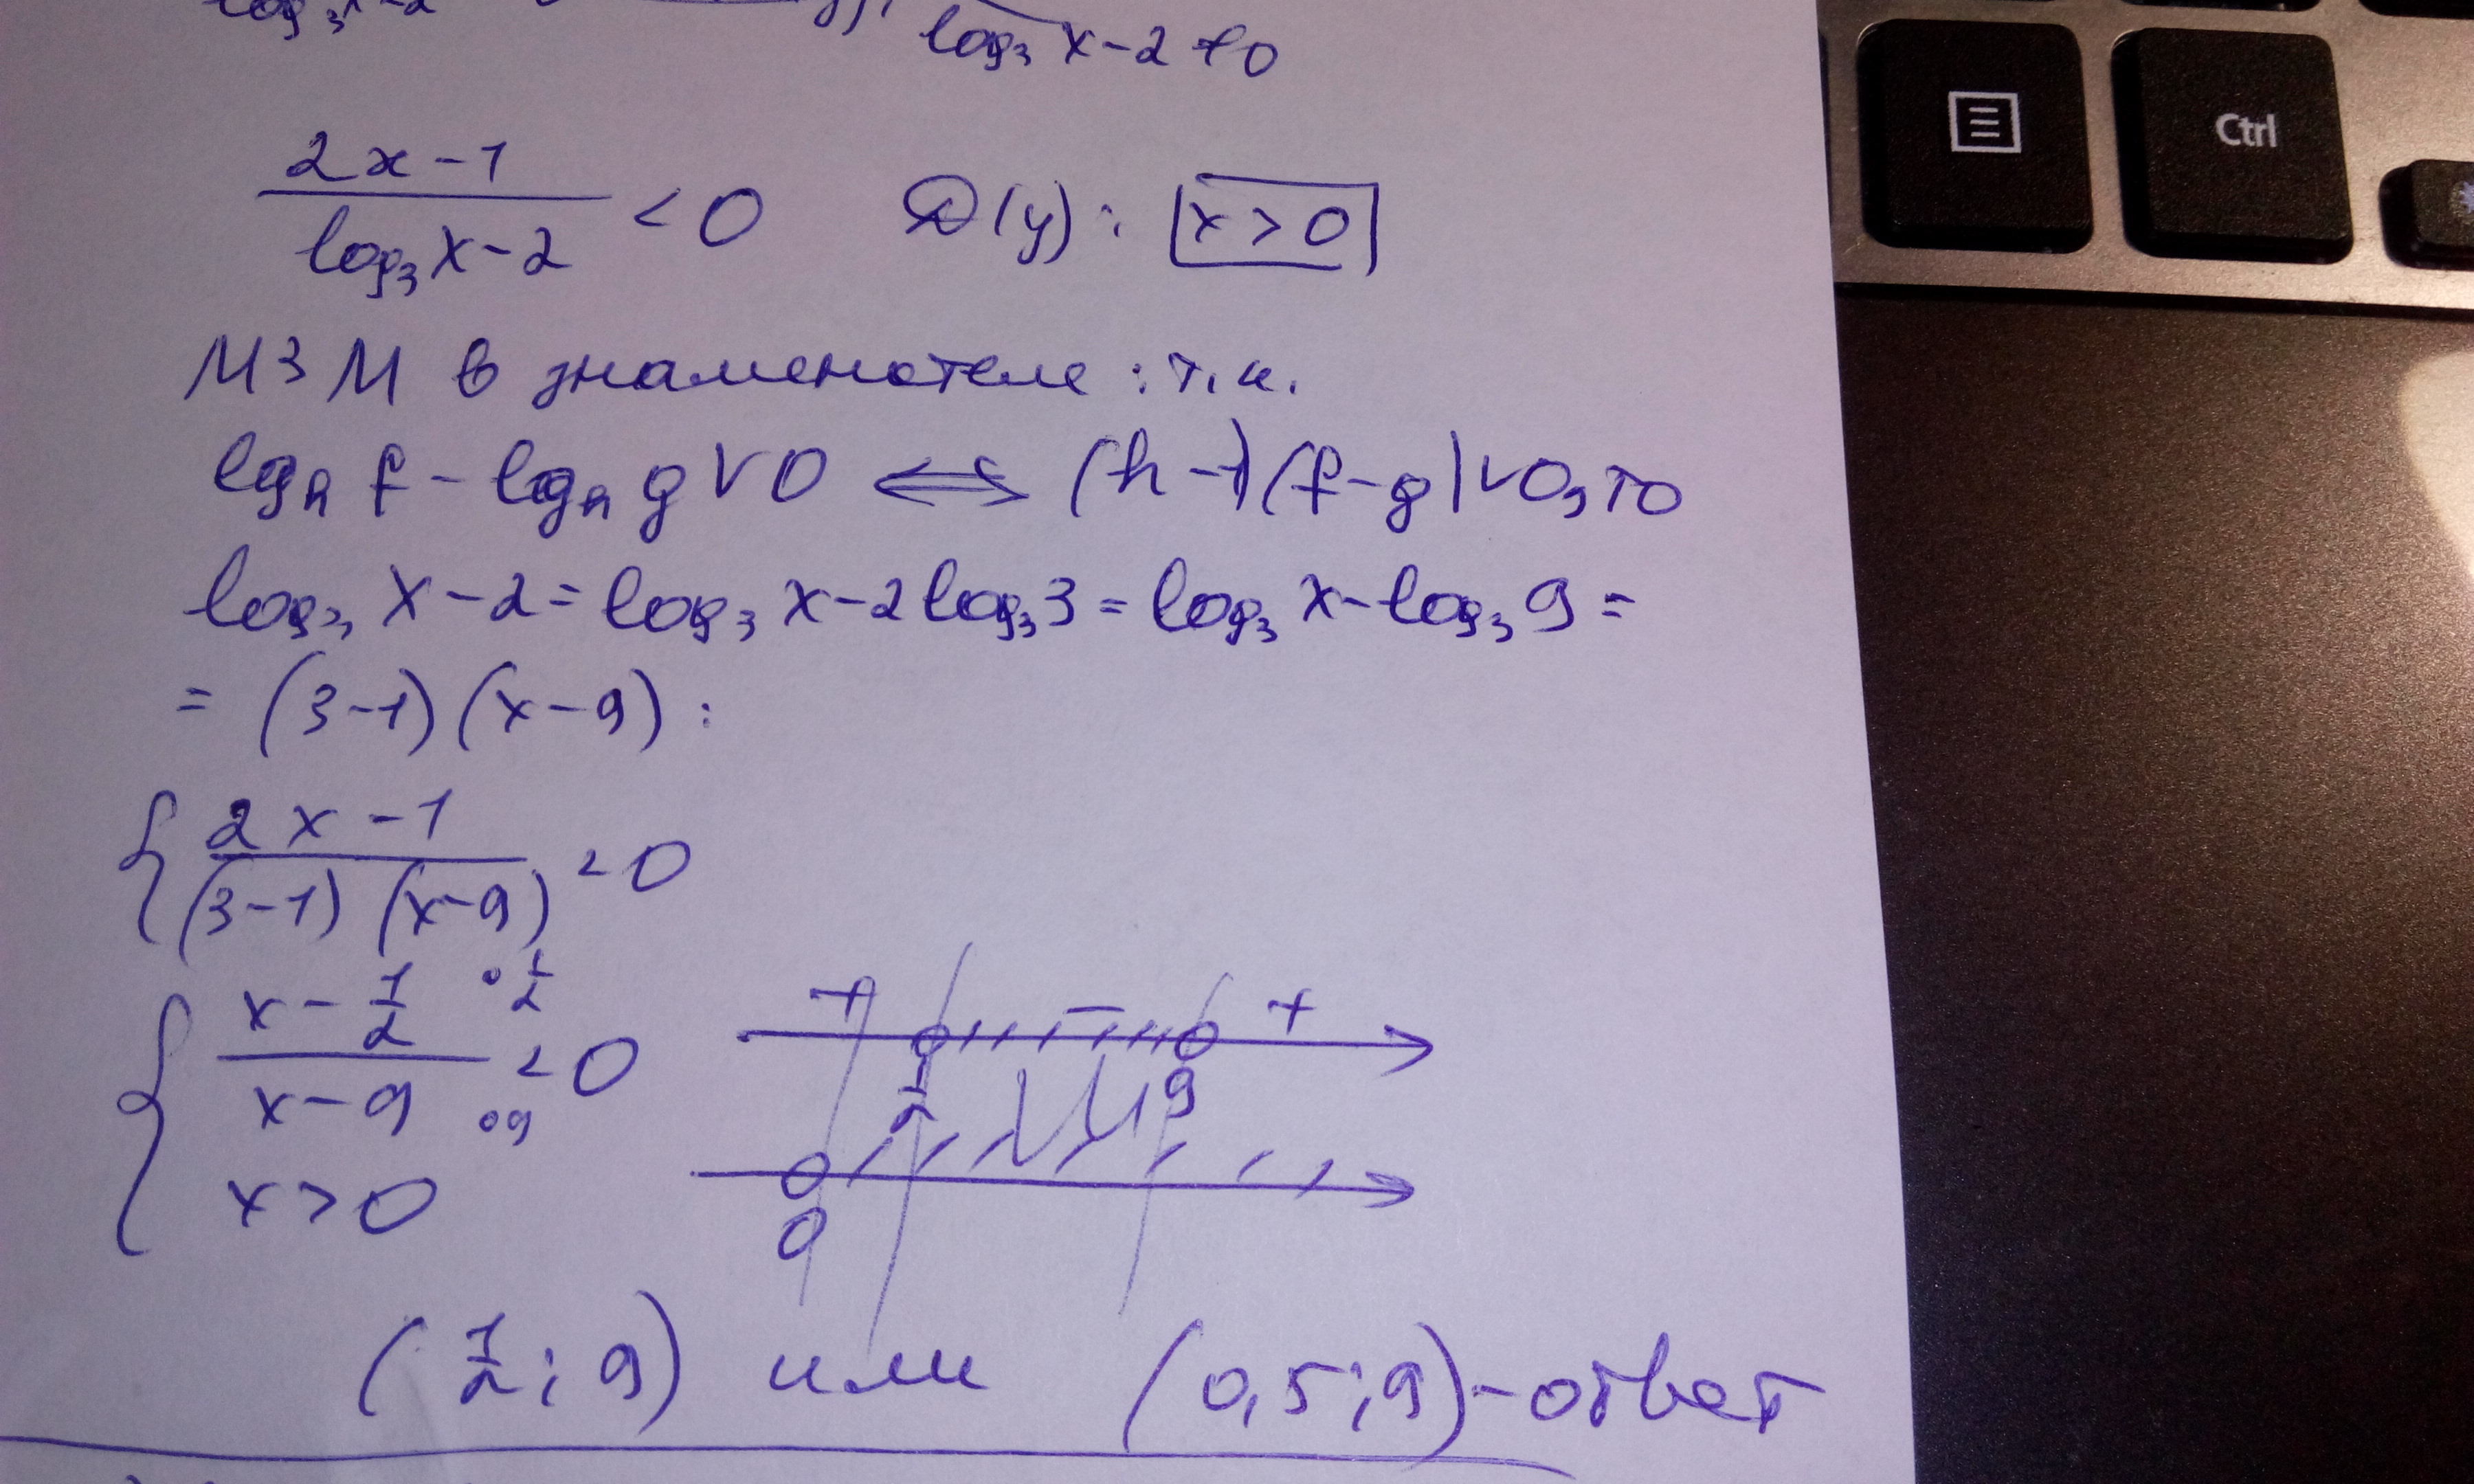 log₃x-2
log₃ x-2 ≠ 0
(2x-1)/(log₃x-2) < 0 D(y): x > 0
Ctrl
МЗМ в знаменателе : т.к.
logₕ f - logₕ g ∨ 0 ⟺ (h-1)(f-g) ∨ 0, то
log₃ x-2 = log₃ x-2log₃3 = log₃ x-log₃ 9 =
= (3-1)(x-9) :
{ (2x-1)/((3-1)(x-9)) < 0
{ (x-1/2)/(x-9) < 0 ∘1/2 ∘9
+ - +
1/2 9
x > 0
0
(1/2; 9) или (0,5;9)-ответ